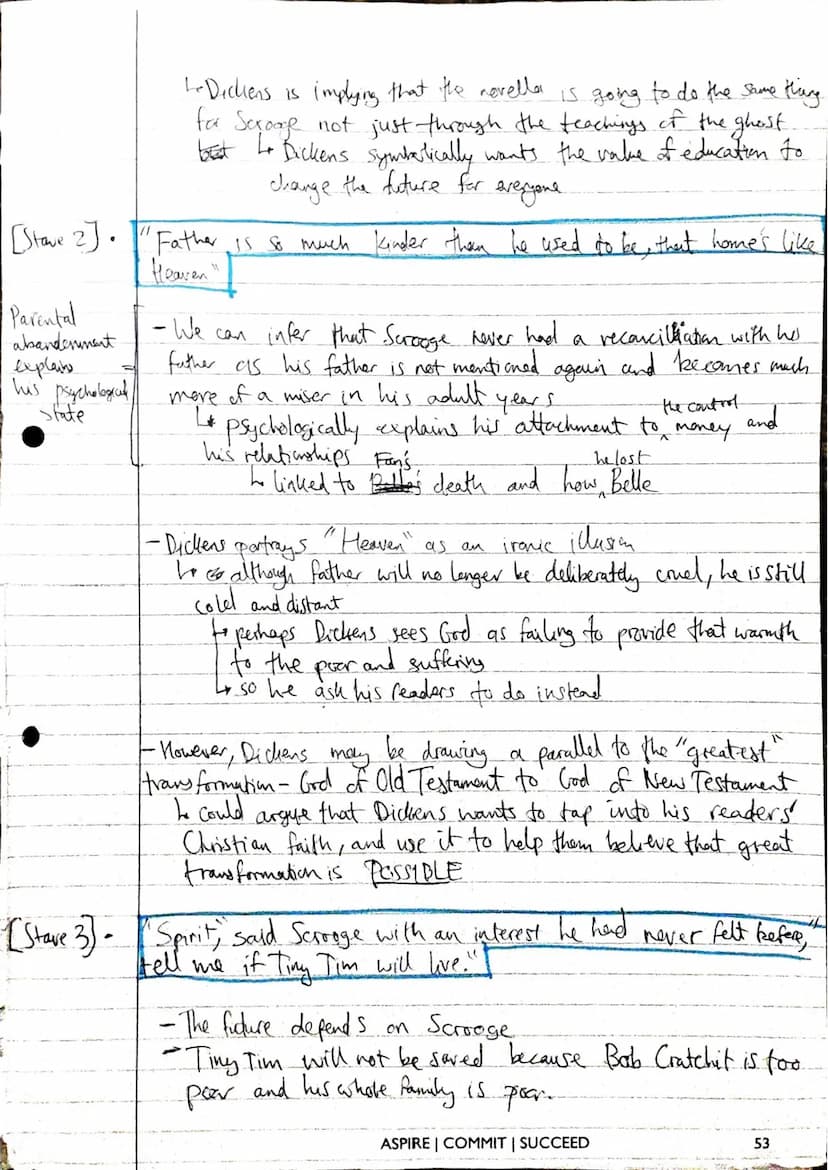 ↳ Dickens is implying that the novella is going to do the same thing
for Scrooge not just through the teachings of the ghost
but ↳ Dickens symbolically wants the value of education to
change the future for everyone
[Stave 2] • "Father is so much kinder than he used to be, that home's like
Heaven"
Parental
abandonment
explains
his psychological
state
- We can infer that Scrooge never had a reconcilliation with his
father as his father is not mentioned again and becomes much
more of a miser in his adult years
↳ psychologically explains his attachment to the control money and
his relationships
↳ linked to Fan's death and how he lost Belle
- Dickens portrays "Heaven" as an ironic illusion
↳ although father will no longer be deliberately cruel, he is still
cold and distant
↳ perhaps Dickens sees God as failing to provide that warmth
to the poor and suffering
↳ so he ask his readers to do instead
- However, Dickens may be drawing a parallel to the "greatest"
transformation - God of Old Testament to God of New Testament
↳ could argue that Dickens wants to tap into his readers'
Christian faith, and use it to help them believe that great
transformation is POSSIBLE
[Stave 3] • "Spirit," said Scrooge with an interest he had never felt before, "
tell me if Tiny Tim will live."
- The future depends on Scrooge
- Tiny Tim will not be saved because Bob Cratchit is too
poor and his whole family is poor.
ASPIRE | COMMIT | SUCCEED 53